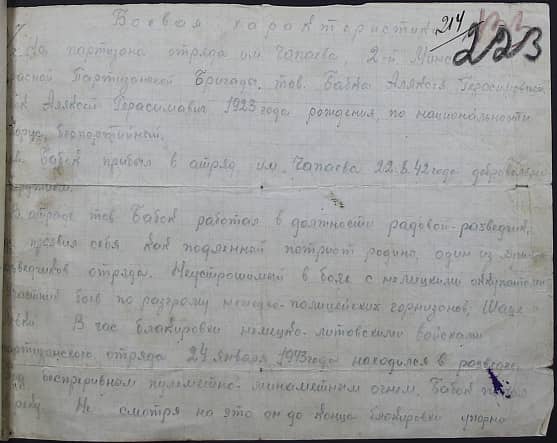 Боевая характеристика
214
223
На партизана отряда им. Чапаева, 2-й Минс
Партизанской Бригады. тов. Бабка Алякся Герасимовича
Аляксей Герасимавич 1923 года рождения, по национальности
беспартийный.
Бабок прибыл в атряд им. Чапаева 22.6.42 года добровольно
атряде тов Бабок работая в должности радовой-разведчик,
себя как подленный потриот родины, один из
отряда. Неустрошомый в боях с немецкими оккупантами
боев по разгрому немецко-полицейских горнизонов, Шацк-
В час блакировки немецко-литовскими войсками
партизанского отряда 24 января 1943 года находился в разведке,
беспреривном пулеметно-минометным огнем. Бабок
Не смотря на это он до конца блокировки упорно